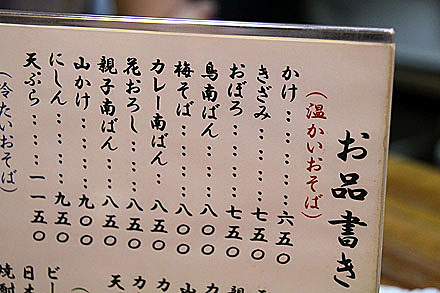 お品書き
(温かいおそば)
かけ‥‥‥‥六五〇
きざみ‥‥‥七五〇
おぼろ‥‥‥七五〇
鳥南ばん‥‥八〇〇
梅そば‥‥‥八〇〇
カレー南ばん‥八〇〇
花おろし‥‥八五〇
親子南ばん‥八五〇
山かけ‥‥‥九〇〇
にしん‥‥‥九五〇
天ぷら‥‥一一五〇
(冷たいおそば)
親
天
山
カ
カ
天
ビー
日本
焼酎